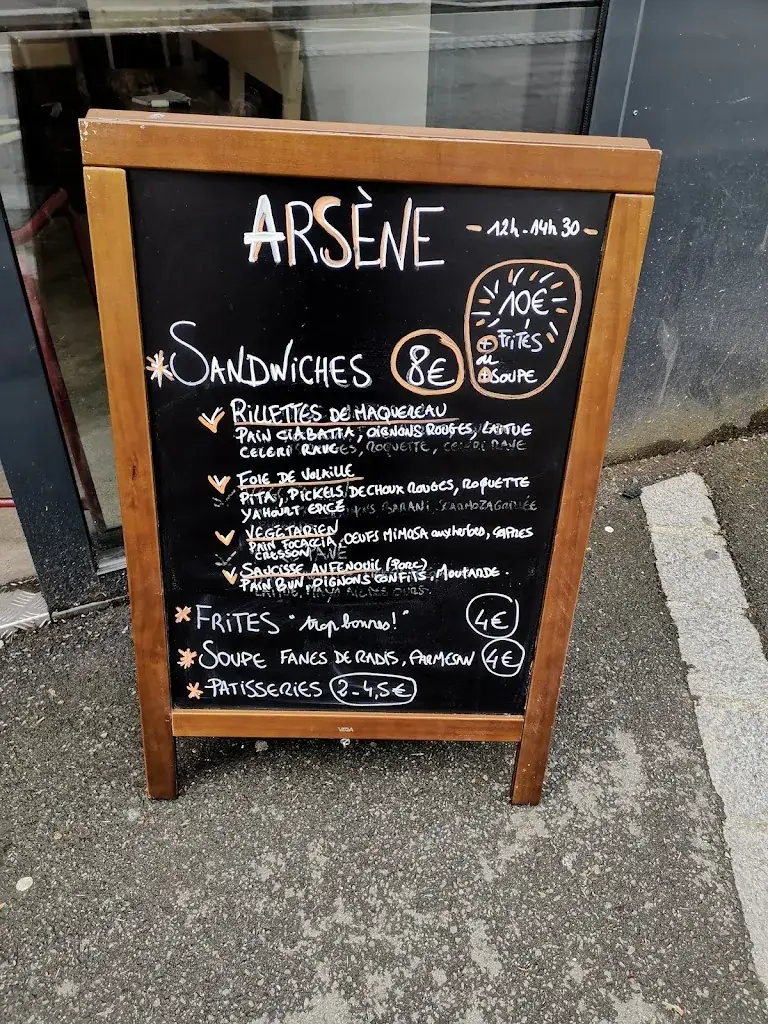 ARSÈNE
- 12h-14h30 -
10€
+ FRITES
ou
+ SOUPE
* SANDWICHES 8€
RILLETTES DE MAQUEREAU
PAIN CIABATTA, OIGNONS ROUGES, LAITUE
CELERI RAVE
FOIE DE VOLAILLE
PITA, PICKELS DE CHOUX ROUGES, ROQUETTE
YAHOURT EPICÉ
VEGETARIEN
PAIN FOCACCIA, OEUFS MIMOSA aux herbes, CAPRES
CRESSON
SAUCISSE AU FENOUIL (PORC)
PAIN BUN, OIGNONS CONFITS, MOUTARDE.
* FRITES "trop bonnes!" 4€
* SOUPE FANES DE RADIS, PARMESAN 4€
* PATISSERIES 2-4,5€